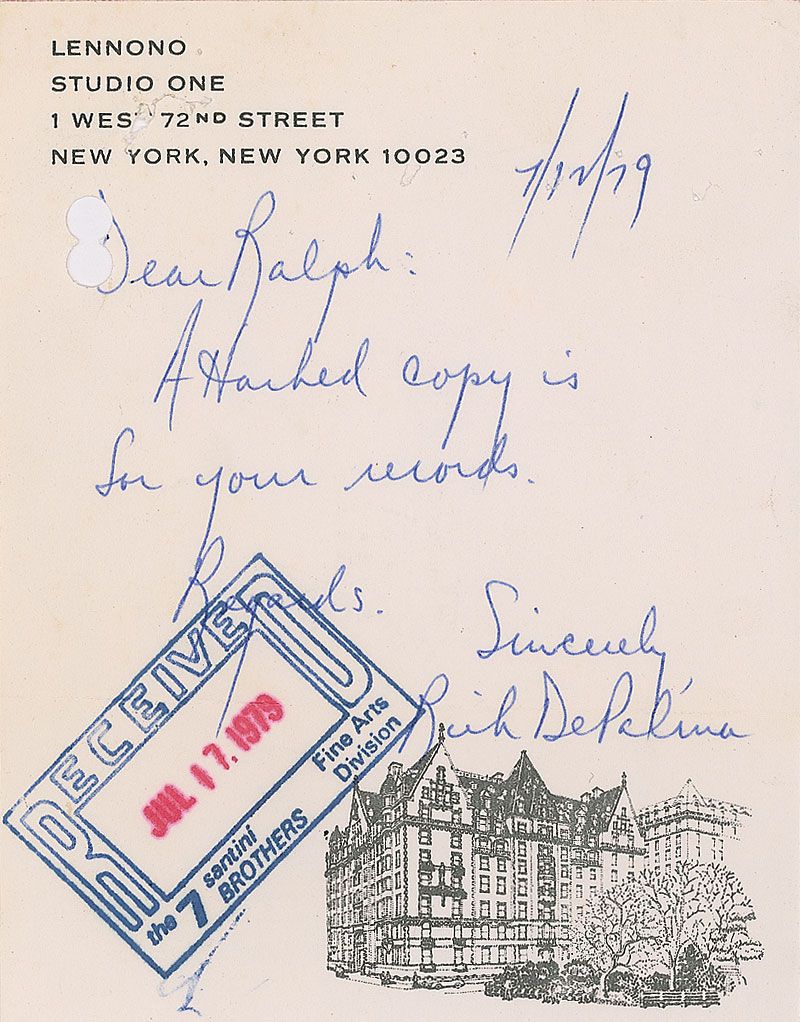 LENNONO
STUDIO ONE
1 WEST 72ND STREET
NEW YORK, NEW YORK 10023
7/12/79
Dear Ralph:
Attached copy is
for your records.
Regards.
Sincerely
Rich DePalma
RECEIVED
JUL 17. 1979
Fine Arts
Division
the 7 santini
BROTHERS